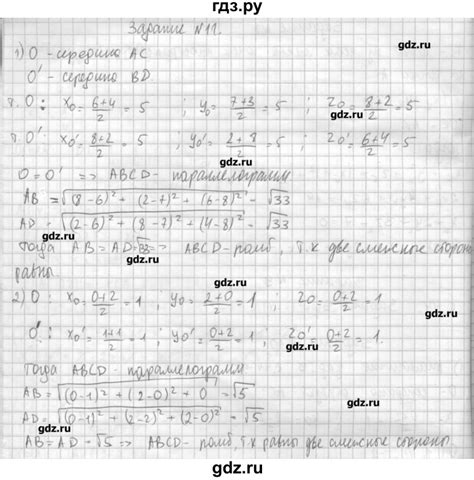 гдз.ру
Задание №11.
1) O - середина AC
gdz.ru
O' - середина BD.
gdz.ru
т. O: x₀ = (6+4)/2 = 5 ; y₀ = (7+3)/2 = 5 ; z₀ = (8+2)/2 = 5
gdz.ru
т. O': x₀' = (8+2)/2 = 5 ; y₀' = (2+8)/2 = 5 ; z₀' = (6+4)/2 = 5
gdz.ru
O = O' => ABCD - параллелограмм
gdz.ru
AB = √((8-6)² + (2-7)² + (6-8)²) = √33
gdz.ru
AD = √((2-6)² + (8-7)² + (4-8)²) = √33
gdz.ru
Тогда AB = AD = √33 => ABCD - ромб, т.к две смежные стороны
равны.
gdz.ru
2) O: x₀ = (0+2)/2 = 1 ; y₀ = (2+0)/2 = 1 ; z₀ = (0+2)/2 = 1.
O': x₀' = (1+1)/2 = 1 ; y₀' = (0+2)/2 = 1 ; z₀' = (0+2)/2 = 1.
gdz.ru
Тогда ABCD - параллелограмм
gdz.ru
AB = √((0-1)² + (2-0)² + 0) = √5
gdz.ru
AD = √((0-1)² + (2-2)² + (2-0)²) = √5
AB = AD = √5 => ABCD - ромб, т.к равны две смежные стороны.
gdz.ru
гдз.ру